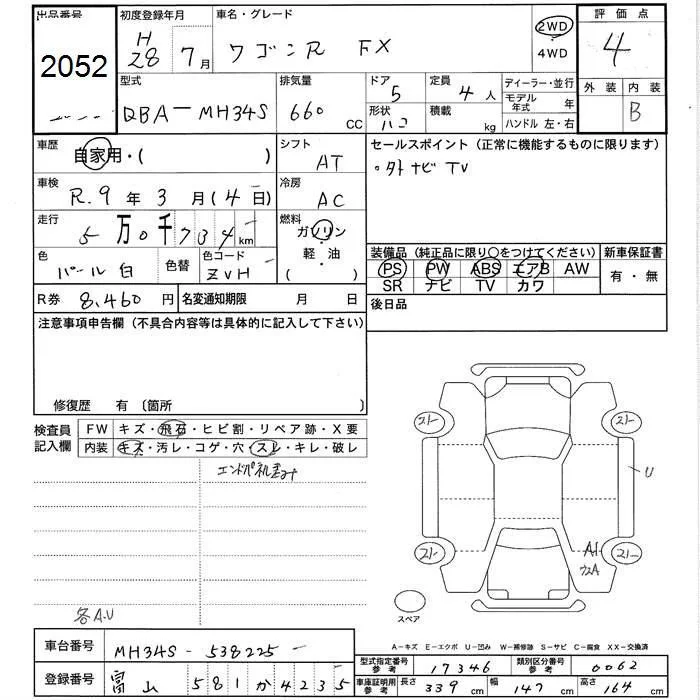 出品番号 初度登録年月 車名・グレード 評価点
2052 H28 7月 ワゴンR FX 2WD ・ 4WD 4
型式 排気量 ドア 定員 ディーラー・並行 外装 内装
DBA－MH34S 660 CC 5 4人 モデル年式 年 B
形状 ハコ 積載 kg ハンドル 左・右
車歴 自家用・( ) シフト AT セールスポイント (正常に機能するものに限ります)
車検 R.9年3月(4日) 冷房 AC ○外ナビTV
走行 5万0千734km 燃料 ガソリン・軽・油 ( )
装備品 (純正品に限り○をつけてください) 新車保証書
色 パール白 色替 色コード ZVH PS PW ABS エアB AW 有・無
SR ナビ TV カワ
R券 8,460円 名変通知期限 月 日 後日品
注意事項申告欄 (不具合内容等は具体的に記入して下さい)
修復歴 有 〔箇所 〕
検査員記入欄 FW キズ・飛石・ヒビ割・リペア跡・X要
内装 キズ・汚レ・コゲ・穴・スレ・キレ・破レ
エンドパネル歪み
スト スト
U
スト A1 スト
スペア
各A.U
A－キズ E－エクボ U－凹み W－補修跡 S－サビ C－腐食 XX－交換済
車台番号 MH34S - 538225 -
型式指定番号参考 17346 類別区分番号参考 0062
登録番号 富山 581か4235 車庫証明用参考 長さ 339cm 幅 147cm 高さ 164cm